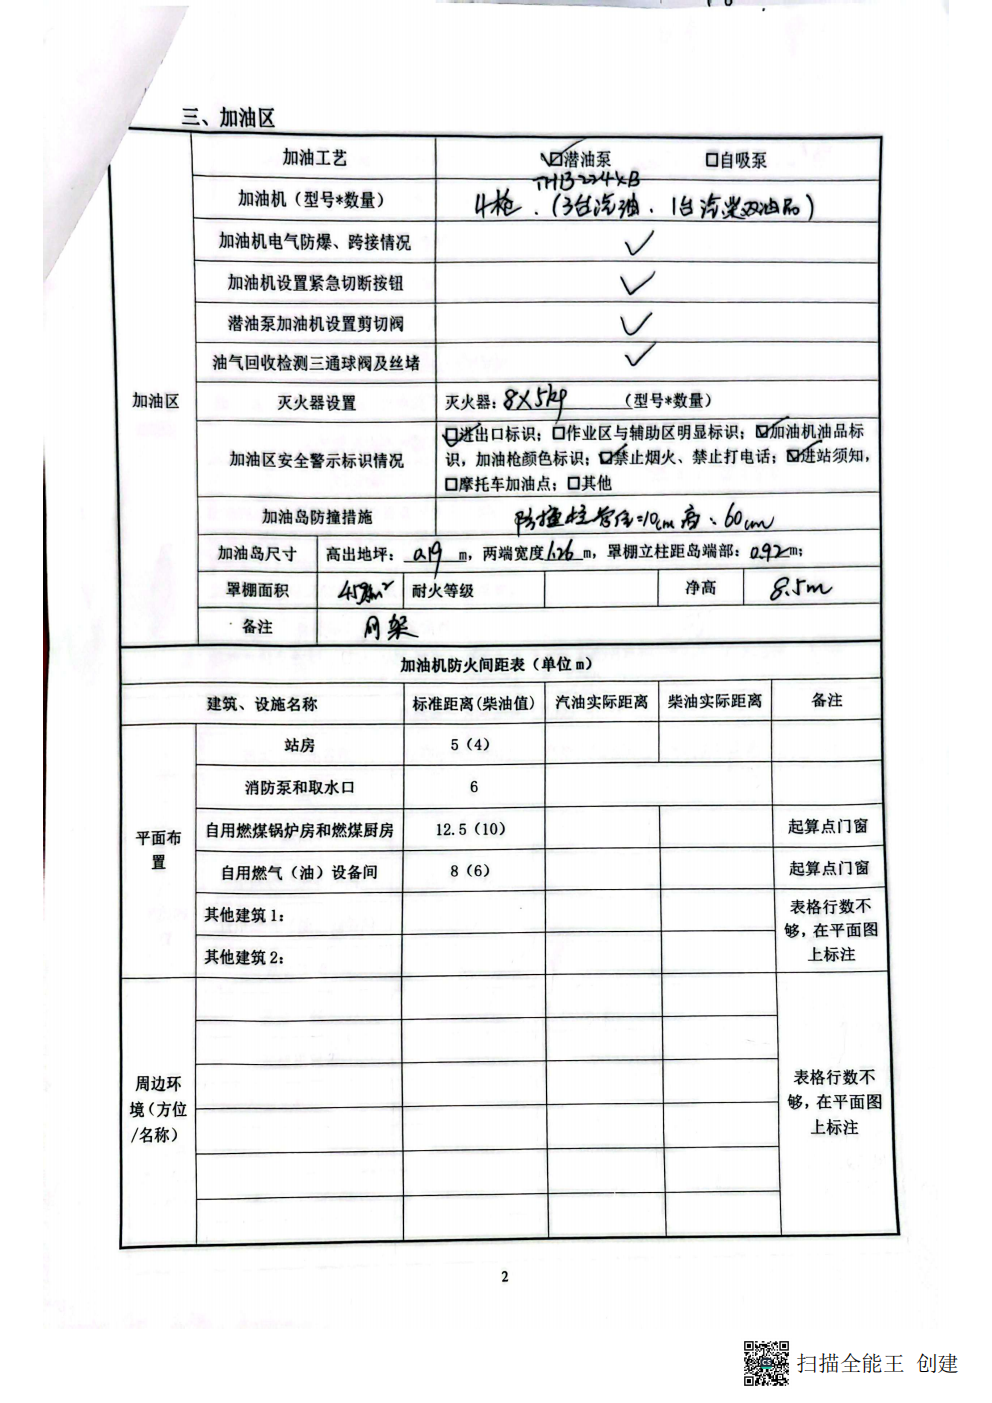 三、加油区
加油区
加油工艺 ☑潜油泵 □自吸泵
加油机（型号*数量） THB224XB
4枪．（3台汽油．1台汽柴双油品）
加油机电气防爆、跨接情况 ✓
加油机设置紧急切断按钮 ✓
潜油泵加油机设置剪切阀 ✓
油气回收检测三通球阀及丝堵 ✓
灭火器设置 灭火器：8X5kg （型号*数量）
加油区安全警示标识情况
☑进出口标识；□作业区与辅助区明显标识；☑加油机油品标
识，加油枪颜色标识；☑禁止烟火、禁止打电话；☑进站须知，
□摩托车加油点；□其他
加油岛防撞措施 防撞柱 管径=10cm 高：60cm
加油岛尺寸 高出地坪：0.19 m，两端宽度1.26 m，罩棚立柱距岛端部：0.92m；
罩棚面积 m² 耐火等级 净高 8.5m
备注 网架
加油机防火间距表（单位 m）
建筑、设施名称 标准距离(柴油值) 汽油实际距离 柴油实际距离 备注
平面布
置
站房 5（4）
消防泵和取水口 6
自用燃煤锅炉房和燃煤厨房 12.5（10） 起算点门窗
自用燃气（油）设备间 8（6） 起算点门窗
其他建筑 1：
其他建筑 2：
表格行数不
够，在平面图
上标注
周边环
境（方位
/名称）
表格行数不
够，在平面图
上标注
2
扫描全能王 创建